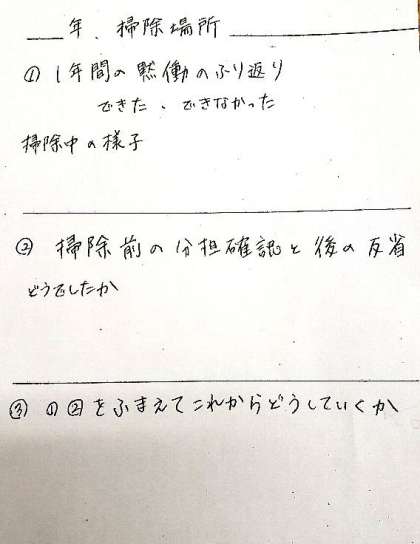 ___年、掃除場所_______
① 1年間の黙働のふり返り
できた・できなかった
掃除中の様子
② 掃除前の分担確認と後の反省
どうでしたか
③ ①②をふまえてこれからどうしていくか